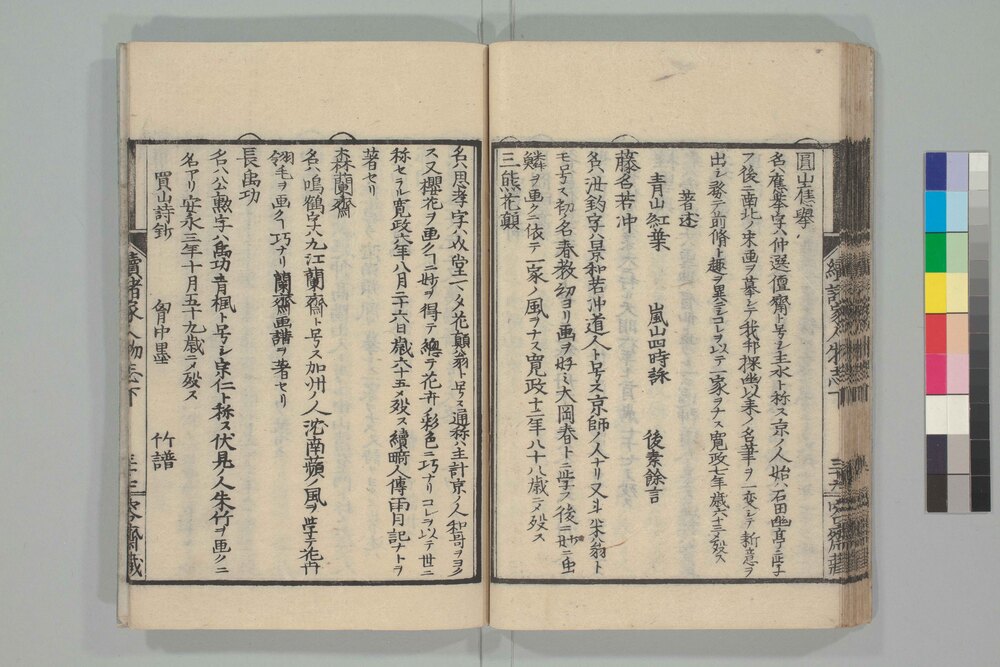 圓山應擧
名ハ應擧字ハ仲選僊齋ト号シ主水ト称ス京ノ人始ハ石田幽亭ニ学
フ後ニ南北ノ宋画ヲ摹シテ我邦探幽以来ノ名筆ヲ一変シテ新意ヲ
出シ務テ前脩ト趣ヲ異ニシコレヲ以テ一家ヲナス寛政七年歳六十三ニメ殁ス
著述
青山紅葉 嵐山四時詠 後素餘言
藤名若冲
名ハ汝鈞字ハ景和若冲道人ト号ス京師ノ人ナリ又斗米翁ト
モ号ス初名春教幼ヨリ画ヲ好ミ大岡春卜ニ学フ後ニ妙ニ虫
鱗ヲ画クニ依テ一家ノ風ヲナス寛政十二年八十八歳ニメ殁ス
三熊花顛
名ハ思孝字ハ以堂一ニタ花顛翁ト号ス通称ハ主計京ノ人和哥ヲヨク
ス又櫻花ヲ画クニ妙ヲ得テ總テ花卉ノ彩色ニ巧ナリコレヲ以テ世ニ
称セラル寛政六年八月二十六日歳六十五ニメ殁ス續畸人傳雨月記ナトヲ
著セリ
森蘭齋
名ハ鳴鶴字ハ九江蘭齋ト号ス加州ノ人沈南蘋ノ風ヲ学テ花卉
翎毛ヲ画クニ巧ナリ蘭齋画譜ヲ著セリ
長禹功
名ハ公勲字ハ禹功青楓ト号シ宗仁ト称ス伏見ノ人朱竹ヲ画クニ
名アリ安永三年十月五十九歳ニメ殁ス
買山詩鈔 胷中墨 竹譜
續諸家人物志下